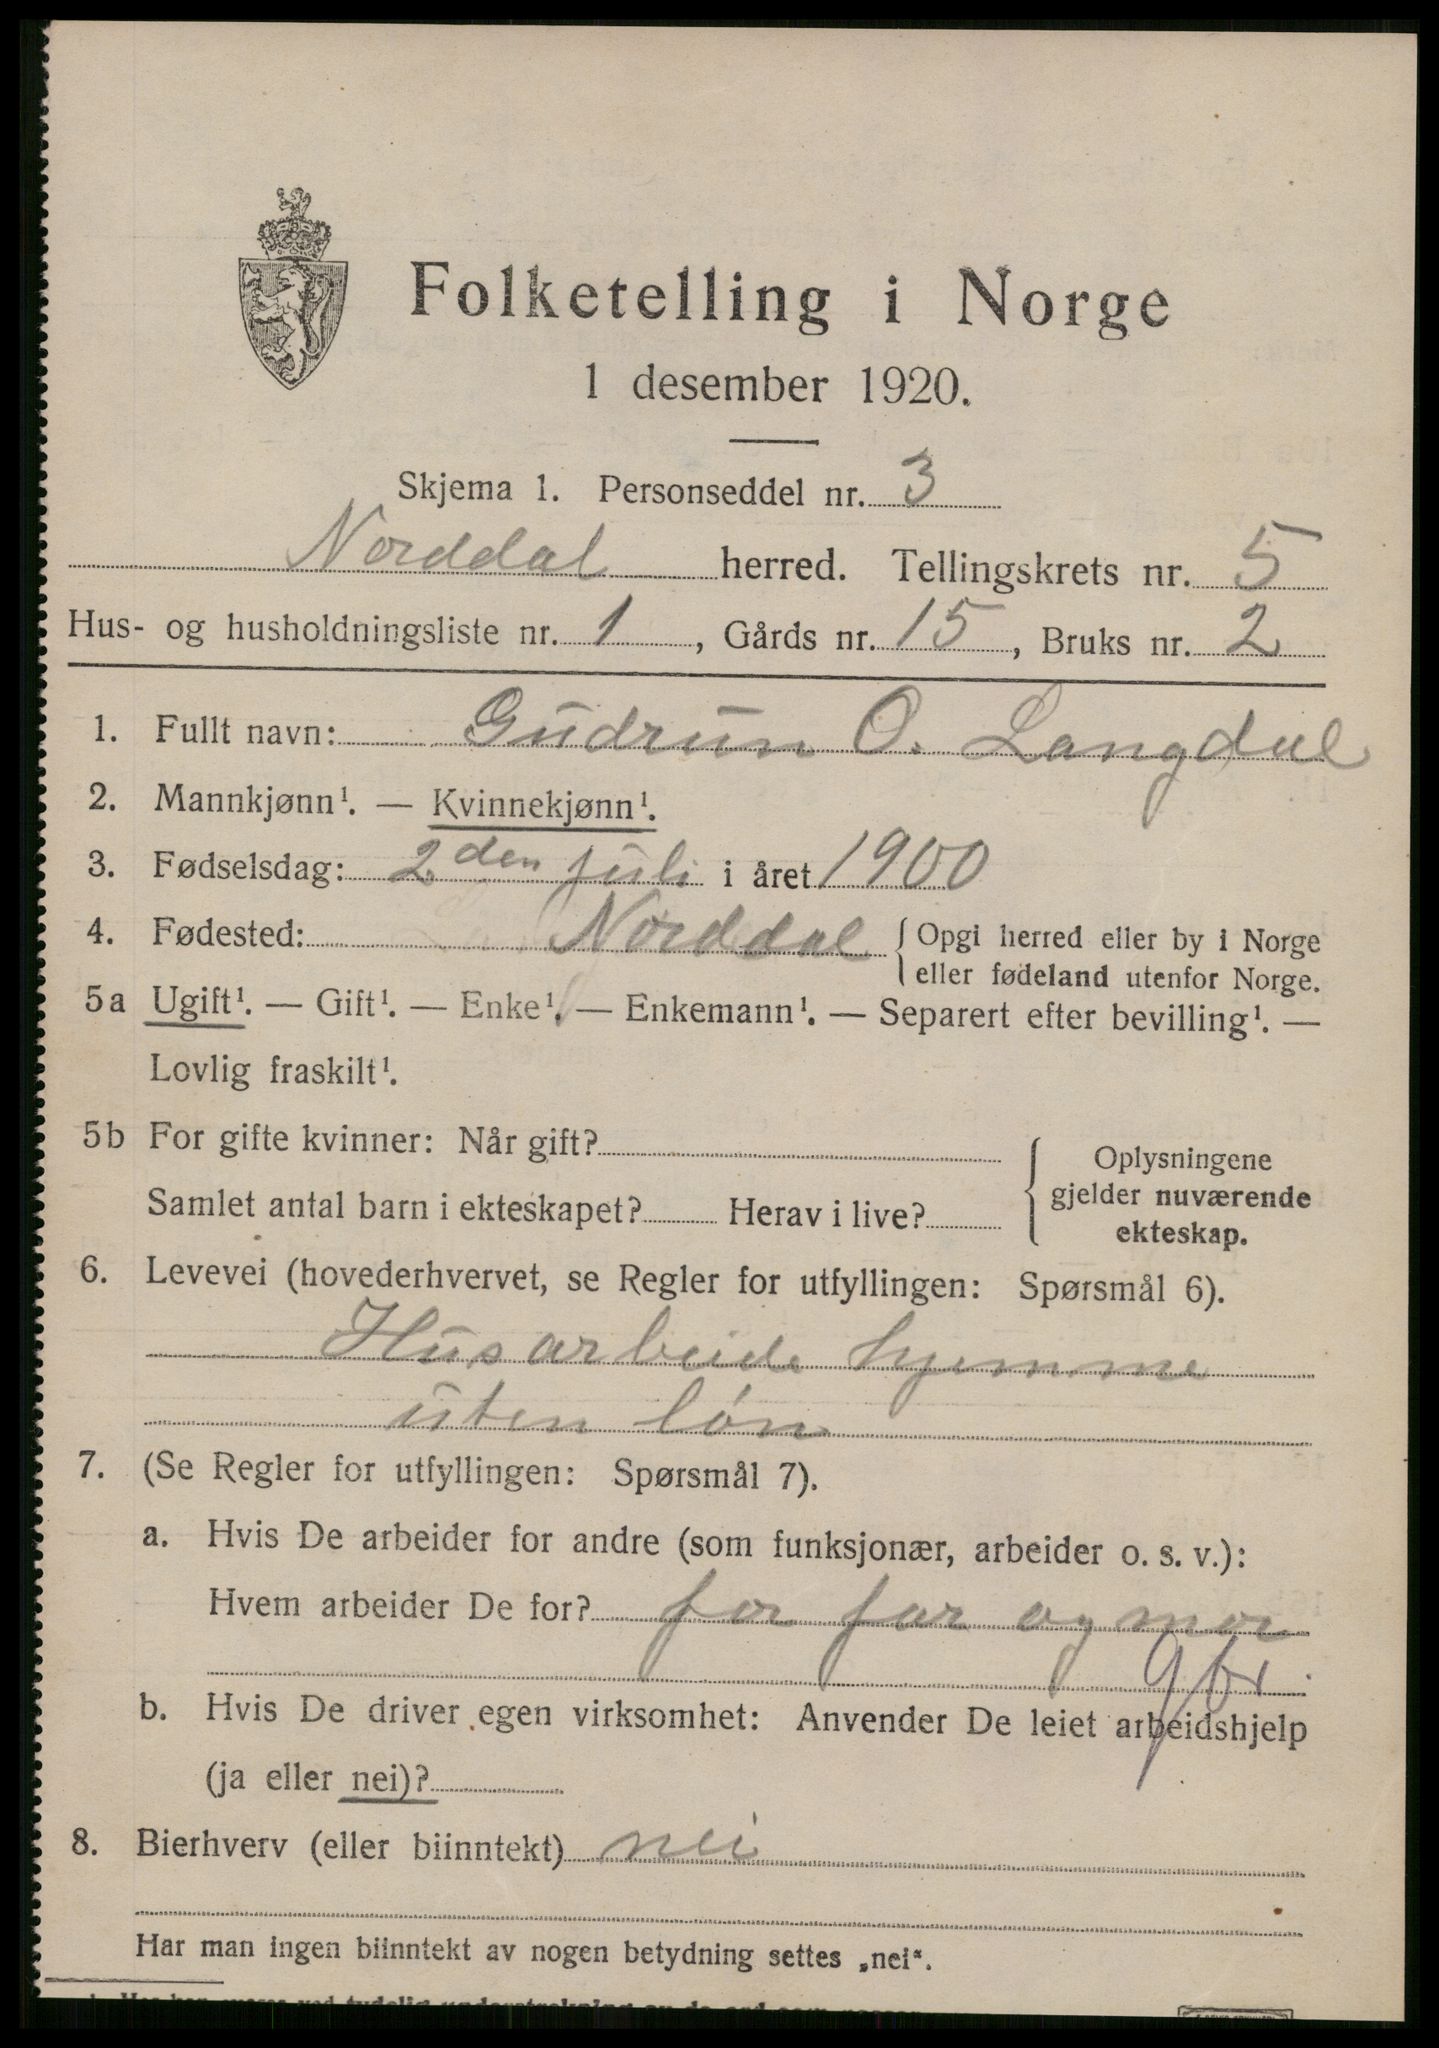 Folketelling i Norge
1 desember 1920.
Skjema 1. Personseddel nr. 3
Norddal herred. Tellingskrets nr. 5
Hus- og husholdningsliste nr. 1, Gårds nr. 15, Bruks nr. 2
1. Fullt navn: Gudrun O. Langdal
2. Mannkjønn¹. — Kvinnekjønn¹.
3. Fødselsdag: 2den juli i året 1900
4. Fødested: Norddal { Opgi herred eller by i Norge
eller fødeland utenfor Norge.
5a Ugift¹. — Gift¹. — Enke¹. — Enkemann¹. — Separert efter bevilling¹. —
Lovlig fraskilt¹.
5b For gifte kvinner: Når gift?
Samlet antal barn i ekteskapet? Herav i live?
Oplysningene
gjelder nuværende
ekteskap.
6. Levevei (hovederhvervet, se Regler for utfyllingen: Spørsmål 6).
Husarbeide hjemme
uten løn
7. (Se Regler for utfyllingen: Spørsmål 7).
a. Hvis De arbeider for andre (som funksjonær, arbeider o. s. v.):
Hvem arbeider De for? for far og mor
b. Hvis De driver egen virksomhet: Anvender De leiet arbeidshjelp
(ja eller nei)?
8. Bierhverv (eller biinntekt) nei
Har man ingen biinntekt av nogen betydning settes „nei“.